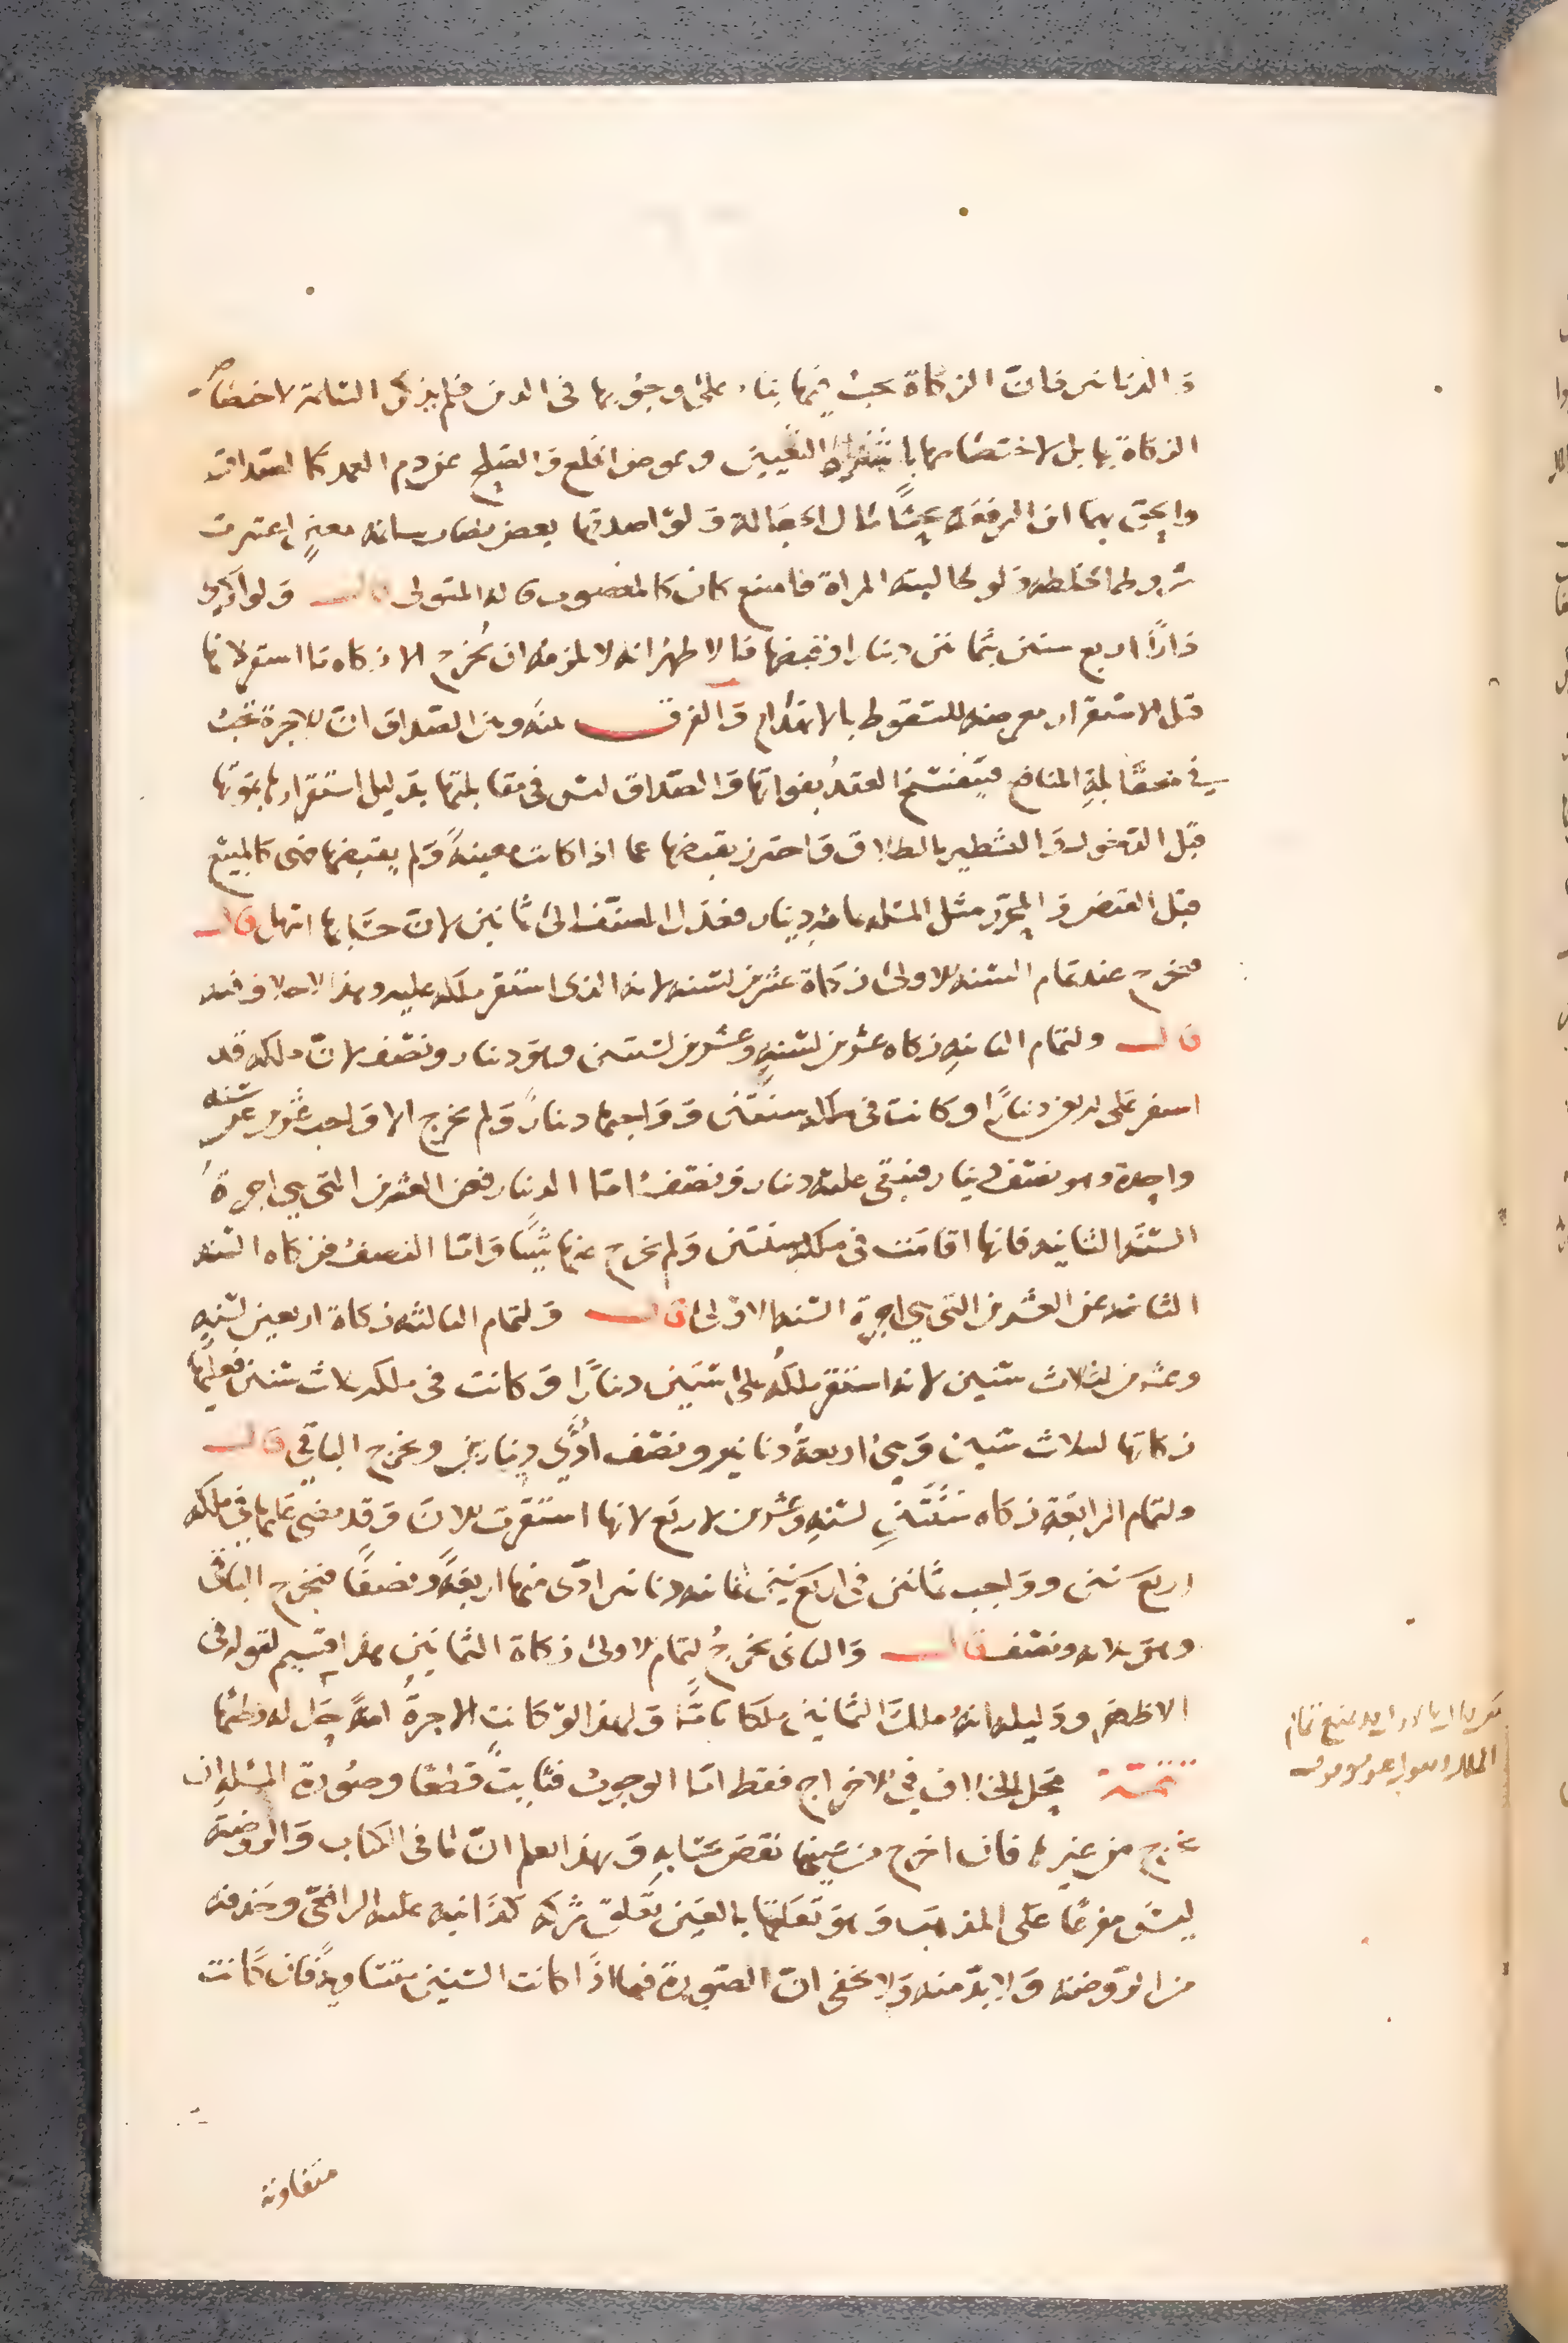 والدنانير فان الزكاة تجب فيها بناء على وجوبها في الدين فلم يذكر السائمة لاختصاص
الزكاة بها بل لاختصاصها باشتراط التعيين وعوض الخلع والصلح عن دم العمد كالصداق
والحق بهما ابن الرفعة بحثا مال الجعالة ولو اصدقها بعض نصاب سائمة معين اعتبرت
شروط الخلطة ولو طالبته المراة فامتنع كان كالمغصوب قاله المتولي قال ولو اكرى
دارا اربع سنين بثمانين دينارا وقبضها فالاظهر انه لا يلزمه ان يخرج الا زكاة ما استقر لانها
قبل الاستقرار معرضة للسقوط بالانهدام والفرق بينه وبين الصداق ان الاجرة تجب
في مقابلة المنافع فينفسخ العقد بفواتها والصداق ليس في مقابلتها بدليل استقراره بموتها
قبل الدخول والتشطير بالطلاق واحترز بقبضها عما اذا كانت معينة ولم يقبضها فهي كالمبيع
قبل القبض والمحرر مثل المسئلة بمائة دينار فعدل المصنف الى ثمانين لان حسابها اسهل قال
فيخرج عند تمام السنة الاولى زكاة عشرين لسنة لانه الذي استقر ملكه عليه وهذا لا خلاف فيه
قال ولتمام الثانية زكاة عشرين لسنة وعشرين لسنتين وهو دينار ونصف لان ملكه قد
استقر على اربعين دينارا وكانت في ملكه سنتين وواجبها ديناران ولم يخرج الا واجب عشرين عن سنة
واحدة وهو نصف دينار فيبقى عليه دينار ونصف اما الدينار فعن العشرين التي هي اجرة
السنة الثانية فانها اقامت في ملكه سنتين ولم يخرج عنها شيئا واما النصف فزكاة السنة
الثانية عن العشرين التي هي اجرة السنة الاولى قال ولتمام الثالثة زكاة اربعين لسنة
وعشرين لثلاث سنين لانه استقر ملكه على ستين دينارا وكانت في ملكه ثلاث سنين فعليه
زكاتها لثلاث سنين وهي اربعة دنانير ونصف أدّى دينارين ويخرج الباقي قال
ولتمام الرابعة زكاة ستين لسنة وعشرين لاربع لانها استقرت الان وقد مضى عليها في ملكه
اربع سنين وواجب ثمانين في اربع سنين ثمانية دنانير ادى منها اربعة ونصفا فيخرج الباقي
وهو ثلاثة ونصف قال والثاني يخرج لتمام الاولى زكاة الثمانين هذا قسيم لقوله في
الاظهر ودليله انه ملك الثمانين ملكا تاما ولهذا لو كانت الاجرة امة حل له وطئها
تتمة محل الخلاف في الاخراج فقط اما الوجوب فثابت قطعا وصورة المسئلة ان
يخرج من غيرها فان اخرج من عينها نقص حسابه وبهذا يعلم ان ما في الكتاب والروضة
ليس مفرعا على المذهب وهو تعلقها بالعين تعلق شركة كذا نبه عليه الرافعي وحذفه
من الروضة ولا بد منه ولا يخفى ان الصورة فيما اذا كانت السنين متساوية فان كانت
متفاوتة